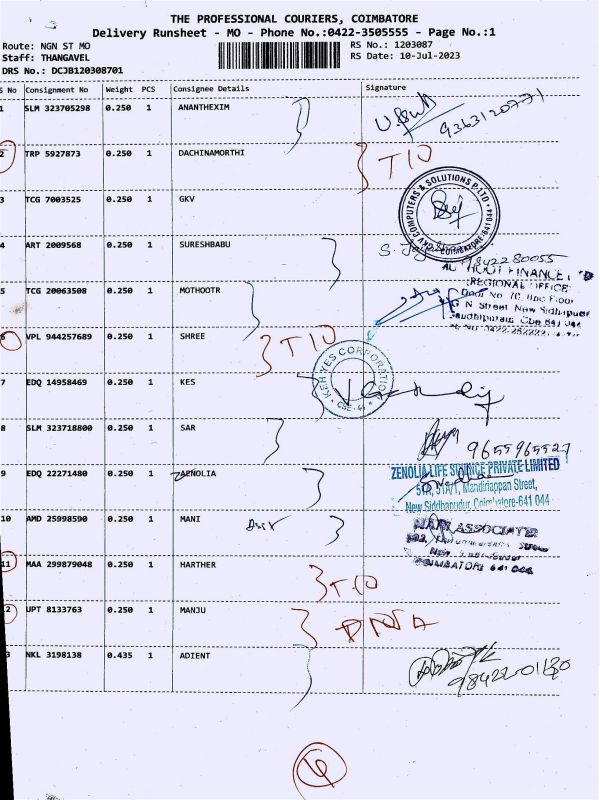 THE PROFESSIONAL COURIERS, COIMBATORE
Delivery Runsheet - MO - Phone No.:0422-3505555 - Page No.:1
Route: NGN ST MO
RS No.: 1203087
Staff: THANGAVEL
RS Date: 10-Jul-2023
DRS No.: DCJB120308701
S No Consignment No Weight PCS Consignee Details Signature
1 SLM 323705298 0.250 1 ANANTHEXIM
9363120771
2 TRP 5927873 0.250 1 DACHINAMORTHI T10
3 TCG 7003525 0.250 1 GKV
COMPUTERS & SOLUTIONS P.LTD
COIMBATORE-641 044
4 ART 2009568 0.250 1 SURESHBABU
9842280055
FINANCE LTD
(REGIONAL OFFICE)
5 TCG 20063508 0.250 1 MOTHOOTR
Door No
G N Street New Sidhapudur
6 VPL 944257689 0.250 1 SHREE T10
KEH YES CORPORATION
7 EDQ 14958469 0.250 1 KES
8 SLM 323718800 0.250 1 SAR
9655965527
9 EDQ 22271480 0.250 1 ZENOLIA
ZENOLIA LIFE SCIENCE PRIVATE LIMITED
51A, 51A/1, Mandiriappan Street,
New Siddhapudur, Coimbatore-641 044
10 AMD 25998590 0.250 1 MANI
MANI ASSOCIATES
COIMBATORE 641 044
11 MAA 299879048 0.250 1 HARTHER T10
12 UPT 8133763 0.250 1 MANJU
3 NKL 3198138 0.435 1 ADIENT